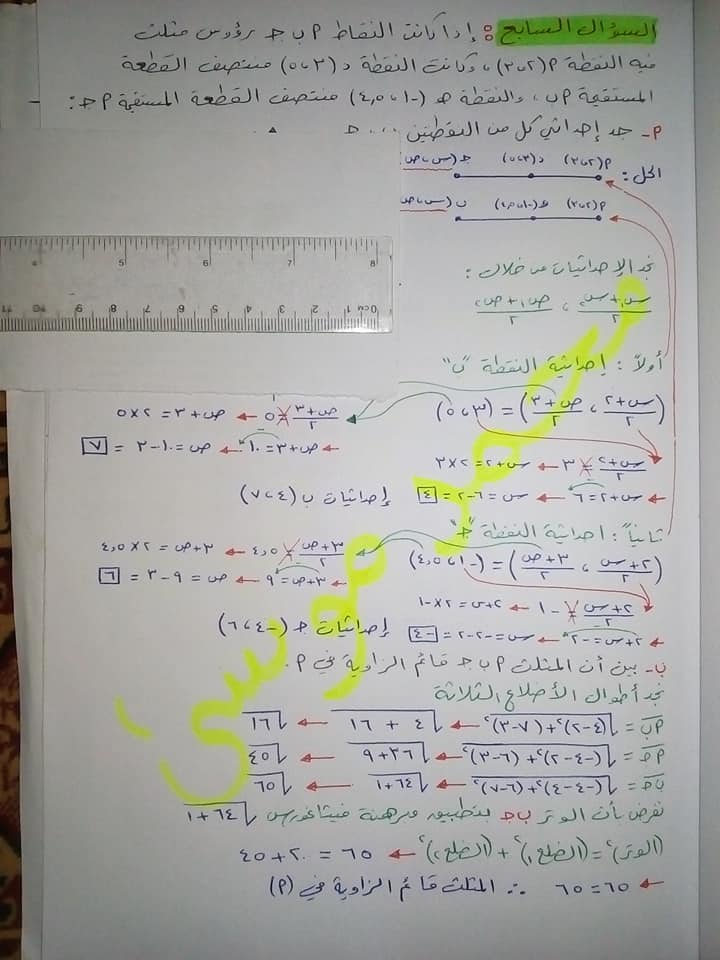 السؤال السابع : إذا كانت النقاط P ب جـ رؤوس مثلث
فيه النقطة P(٢،٣)، وكانت النقطة د(٣،٥) منتصف القطعة
المستقيمة P ب، والنقطة هـ (-١،٤,٥) منتصف القطعة المستقيمة P جـ:
P- جد إحداثي كل من النقطتين
الحل: P(٢،٣) د(٣،٥) جـ(س،ص)
P(٢،٣) هـ(-١،٤,٥) ب(س،ص)
نجد الإحداثيات من خلال:
س١+س٢/٢ ، ص١+ص٢/٢
أولاً: إحداثية النقطة "ب"
(س+٢/٢ ، ص+٣/٢) = (٣،٥) ص+٣/٢ = ٥ ← ص+٣ = ٢×٥
← ص+٣=١٠ ← ص=١٠-٣ = ٧
س+٢/٢ = ٣ ← س+٢ = ٢×٣
← س+٢=٦ ← س=٦-٢ = ٤ إحداثيات ب (٤،٧)
ثانياً: احداثية النقطة "جـ"
(٢+س/٢ ، ٣+ص/٢) = (-١،٤,٥) ٣+ص/٢ = ٤,٥ ← ٣+ص = ٢×٤,٥
← ٣+ص=٩ ← ص = ٩-٣ = ٦
٢+س/٢ = -١ ← ٢+س = ٢×-١
← ٢+س=-٢ ← س=-٢-٢ = -٤ إحداثيات جـ (-٤،٦)
ب- بين أن المثلث P ب جـ قائم الزاوية في P.
نجد أطوال الأضلاع الثلاثة
Pب = √(٤-٢)²+(٧-٣)² ← √٤+١٦ ← √١٦
Pجـ = √(-٤-٢)²+(٦-٣)² ← √٣٦+٩ ← √٤٥
بجـ = √(-٤-٤)²+(٦-٧)² ← √٦٤+١ ← √٦٥
نفرض بأن الوتر بجـ بتطبيق مبرهنة فيثاغورس √٦٤+١
(الوتر)² = (الضلع١)² + (الضلع٢)² ← ٦٥ = ٢٠+٤٥
← ٦٥=٦٥ ∴ المثلث قائم الزاوية في (P)
محمد موسى